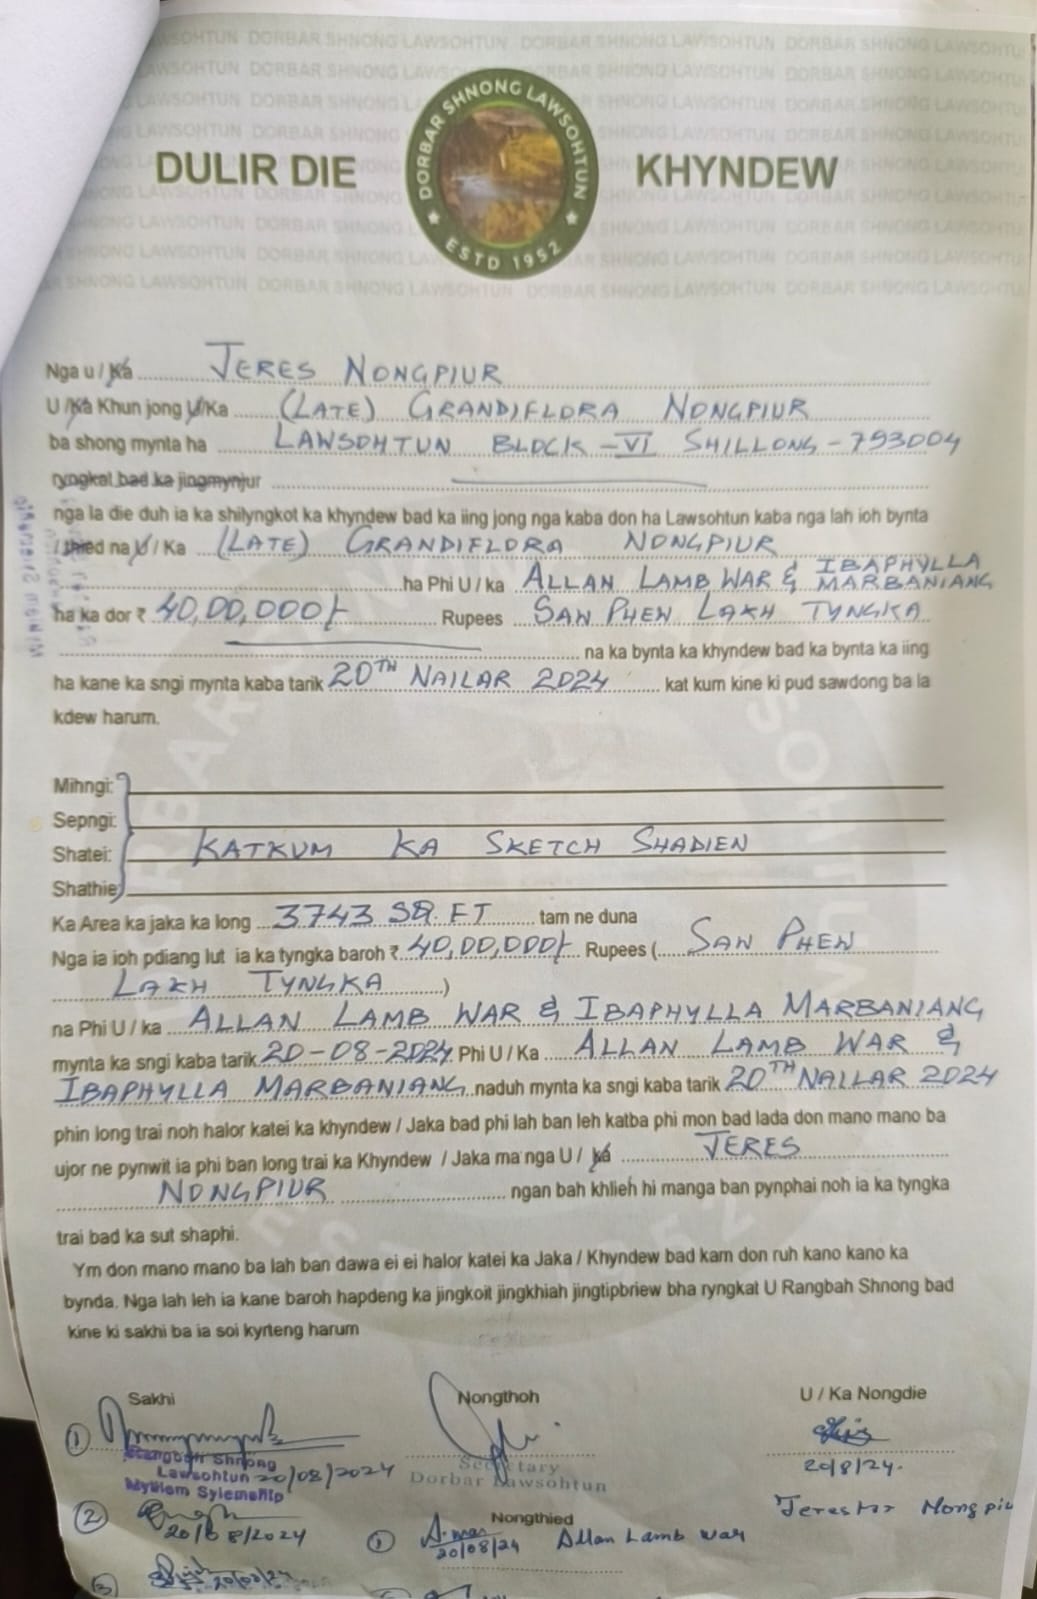 DORBAR SHNONG LAWSOHTUN
ESTD 1952
DULIR DIE KHYNDEW
Nga u / Ka JERES NONGPIUR
U / Ka Khun jong U/Ka (LATE) GRANDIFLORA NONGPIUR
ba shong mynta ha LAWSOHTUN BLOCK - VI SHILLONG - 793004
ryngkat bad ka jingmynjur
nga la die duh ia ka shilyngkot ka khyndew bad ka iing jong nga kaba don ha Lawsohtun kaba nga lah ioh bynta
/ thied na U / Ka (LATE) GRANDIFLORA NONGPIUR
ha Phi U / ka ALLAN LAMB WAR & IBAPHYLLA MARBANIANG
ha ka dor ₹ 40,00,000/- Rupees SAN PHEW LAKH TYNGKA
na ka bynta ka khyndew bad ka bynta ka iing
ha kane ka sngi mynta kaba tarik 20TH NAILAR 2024 kat kum kine ki pud sawdong ba la
kdew harum.
Mihngi:
Sepngi:
Shatei: KATKUM KA SKETCH SHADIEN
Shathie
Ka Area ka jaka ka long 3743 SQ. FT tam ne duna
Nga ia ioh pdiang lut ia ka tyngka baroh ₹ 40,00,000/- Rupees ( SAN PHEW
LAKH TYNGKA )
na Phi U / ka ALLAN LAMB WAR & IBAPHYLLA MARBANIANG
mynta ka sngi kaba tarik 20-08-2024 Phi U / Ka ALLAN LAMB WAR &
IBAPHYLLA MARBANIANG naduh mynta ka sngi kaba tarik 20TH NAILAR 2024
phin long trai noh halor katei ka khyndew / Jaka bad phi lah ban leh katba phi mon bad lada don mano mano ba
ujor ne pynwit ia phi ban long trai ka Khyndew / Jaka ma nga U / ka JERES
NONGPIUR ngan bah khlieh hi manga ban pynphai noh ia ka tyngka
trai bad ka sut shaphi.
Ym don mano mano ba lah ban dawa ei ei halor katei ka Jaka / Khyndew bad kam don ruh kano kano ka
bynda. Nga lah leh ia kane baroh hapdeng ka jingkoit jingkhiah jingtipbriew bha ryngkat U Rangbah Shnong bad
kine ki sakhi ba ia soi kyrteng harum
Sakhi Nongthoh U / Ka Nongdie
1
Rangbah Shnong
Lawsohtun 20/08/2024
Mylliem Syiemship
Secretary
Dorbar Lawsohtun
20/8/24.
Jerestar Nongpiu
2
20/08/2024
Nongthied
1 20/08/24 Allan Lamb War
3 20/08/24